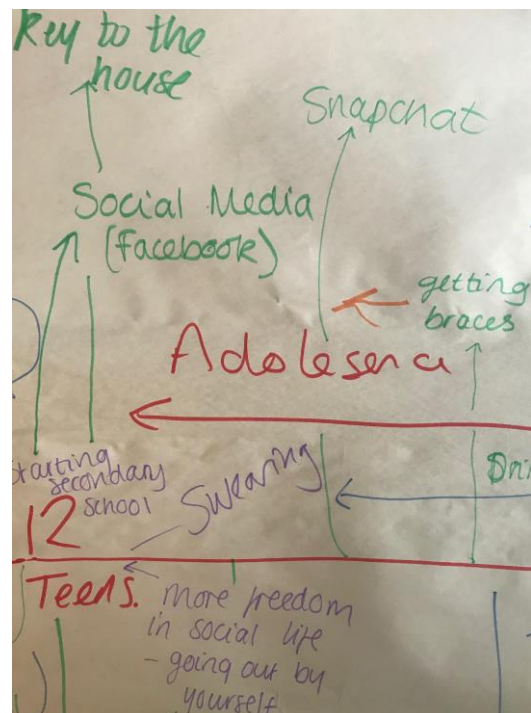 Key to the
house
Snapchat
Social Media
(facebook)
getting
braces
Adolesenc
starting
secondary
school
Swearing
Dri
12
Teens.
more freedom
in social life
- going out by
yourself